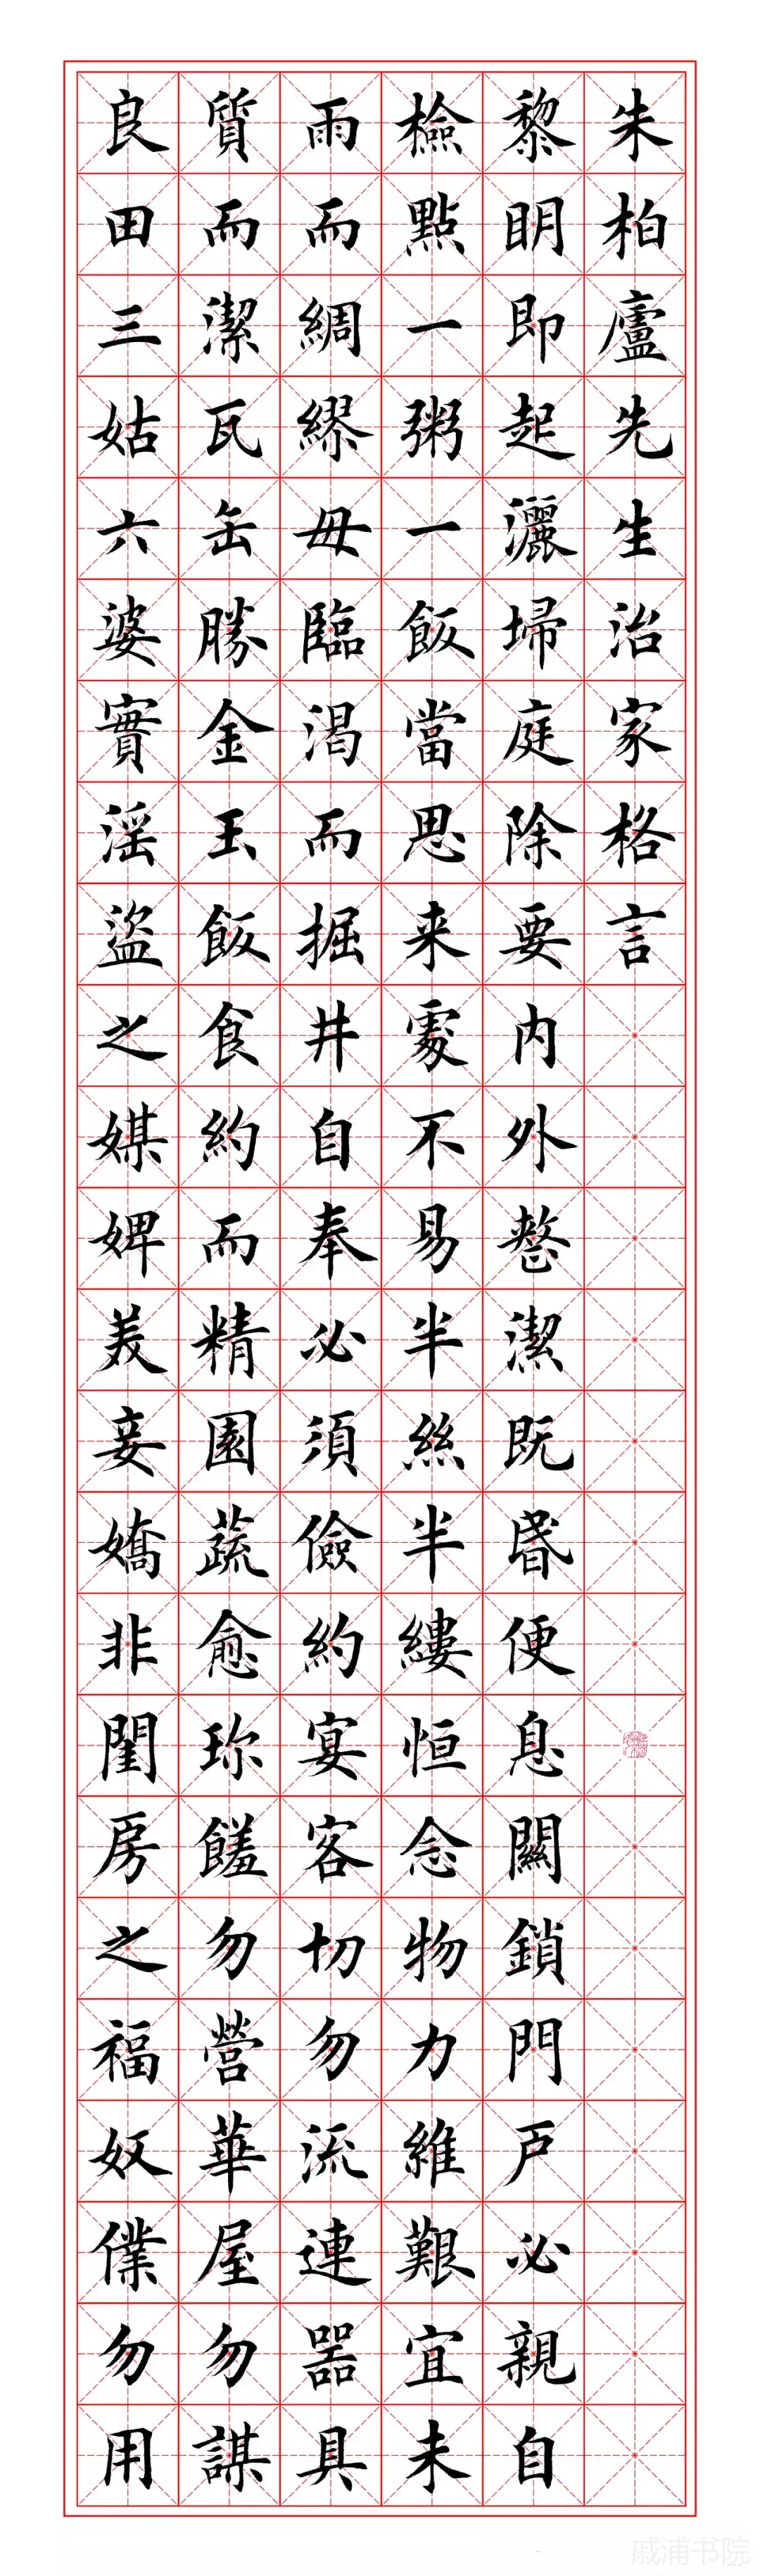 朱柏廬先生治家格言
黎眀即起灑埽庭除要内外整潔既昬便息關鎖門戸必親自
檢點一粥一飯當思来處不易半絲半縷恒念物力維艱宜未
雨而綢繆毋臨渴而掘井自奉必須儉約宴客切勿流連器具
質而潔瓦缶勝金玉飯食約而精園蔬愈珎饈勿營華屋勿謀
良田三姑六婆實淫盜之媒婢美妾嬌非閨房之福奴僕勿用
戚浦书院